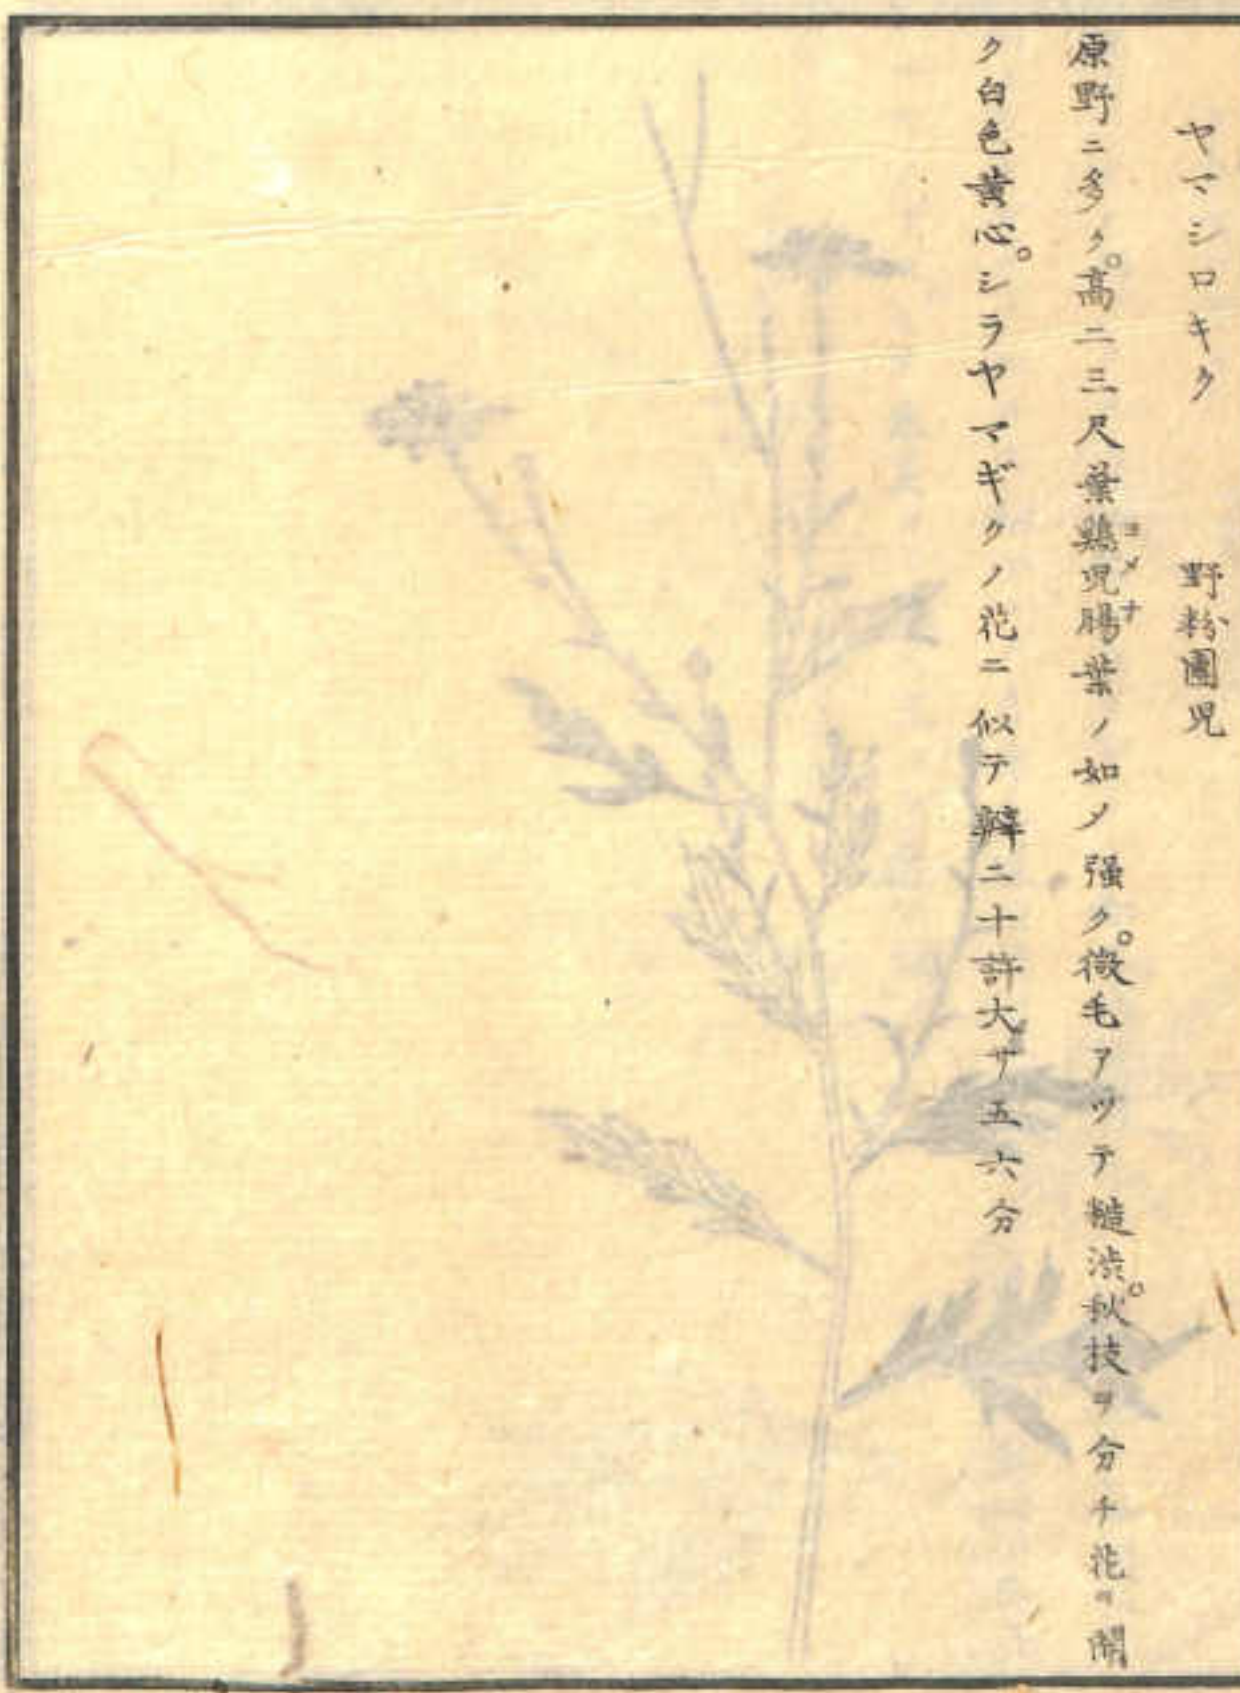 ヤマシロキク　野粉團児
原野ニ多ク。高二三尺葉鶏児腸葉ノ如メ强ク。微毛アツテ糙渋。秋技ヲ分チ花ヲ開
ヨメナ
ク白色黄心。シラヤマギクノ花ニ似テ瓣二十許大サ五六分